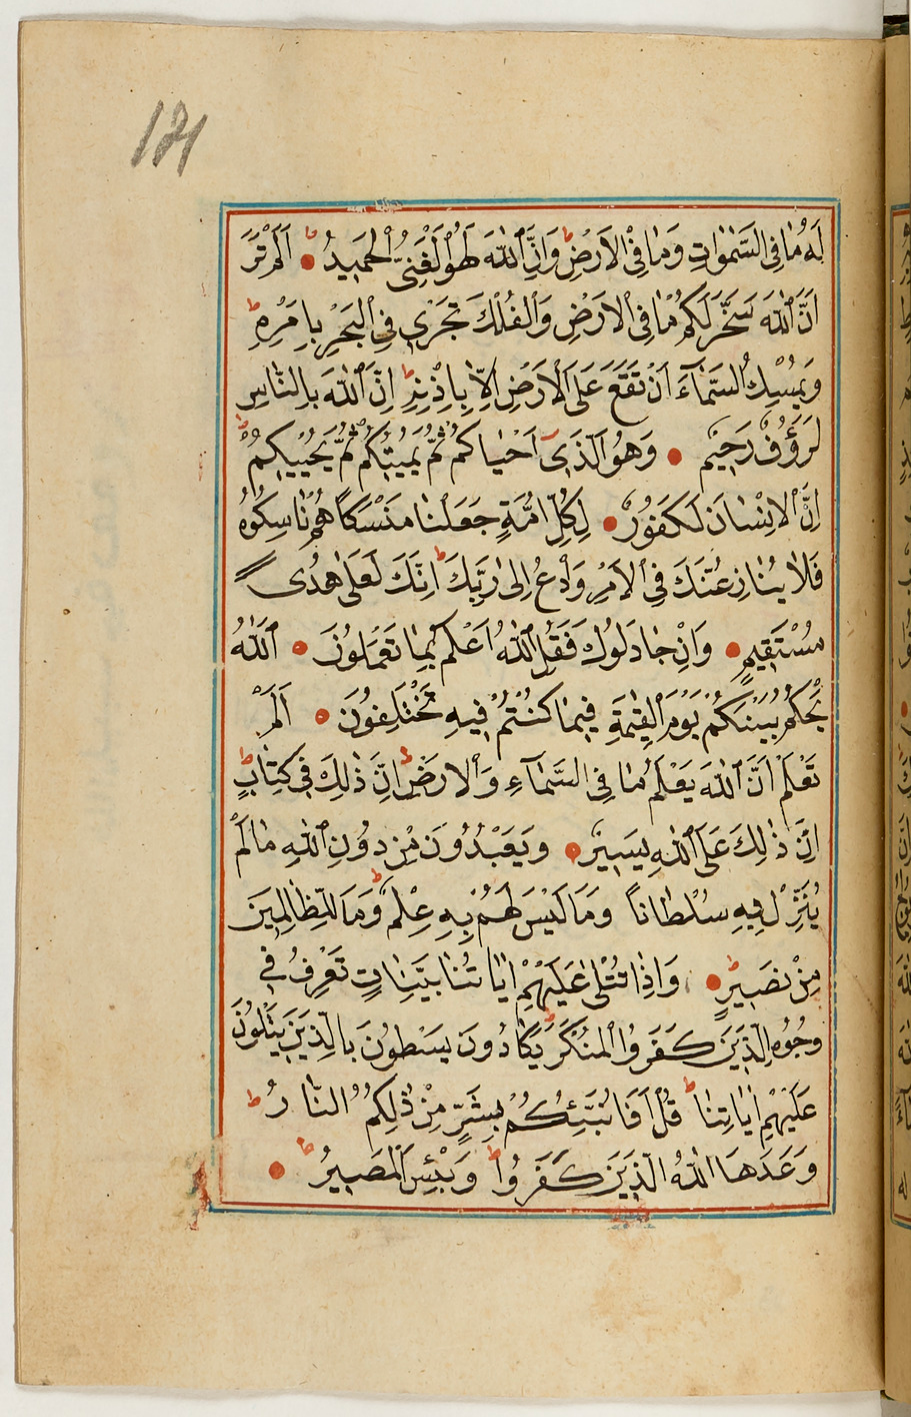 171
لَهُ مَا فِى السَّمٰوَاتِ وَمَا فِى الْاَرْضِ ط وَاِنَّ اللّٰهَ لَهُوَ الْغَنِىُّ الْحَمِيدُ ط اَلَمْ تَرَ
اَنَّ اللّٰهَ سَخَّرَ لَكُمْ مَا فِى الْاَرْضِ وَالْفُلْكَ تَجْرِى فِى الْبَحْرِ بِاَمْرِهِ ط
وَيُمْسِكُ السَّمَآءَ اَنْ تَقَعَ عَلَى الْاَرْضِ اِلَّا بِاِذْنِهِ ط اِنَّ اللّٰهَ بِالنَّاسِ
لَرَؤُفٌ رَحِيمٌ وَهُوَ الَّذِى اَحْيَاكُمْ ثُمَّ يُمِيتُكُمْ ثُمَّ يُحْيِيكُمْ ط
اِنَّ الْاِنْسَانَ لَكَفُورٌ لِكُلِّ اُمَّةٍ جَعَلْنَا مَنْسَكًا هُمْ نَاسِكُوهُ
فَلَا يُنَازِعُنَّكَ فِى الْاَمْرِ وَادْعُ اِلٰى رَبِّكَ ط اِنَّكَ لَعَلٰى هُدًى
مُسْتَقِيمٍ وَاِنْ جَادَلُوكَ فَقُلِ اللّٰهُ اَعْلَمُ بِمَا تَعْمَلُونَ اَللّٰهُ
يَحْكُمُ بَيْنَكُمْ يَوْمَ الْقِيٰمَةِ فِيمَا كُنْتُمْ فِيهِ تَخْتَلِفُونَ اَلَمْ
تَعْلَمْ اَنَّ اللّٰهَ يَعْلَمُ مَا فِى السَّمَآءِ وَالْاَرْضِ ط اِنَّ ذٰلِكَ فِى كِتَابٍ ط
اِنَّ ذٰلِكَ عَلَى اللّٰهِ يَسِيرٌ وَيَعْبُدُونَ مِنْ دُونِ اللّٰهِ مَا لَمْ
يُنَزِّلْ بِهِ سُلْطَانًا وَمَا لَيْسَ لَهُمْ بِهِ عِلْمٌ ط وَمَا لِلظَّالِمِينَ
مِنْ نَصِيرٍ ط وَاِذَا تُتْلٰى عَلَيْهِمْ اٰيَاتُنَا بَيِّنَاتٍ تَعْرِفُ فِى
وُجُوهِ الَّذِينَ كَفَرُوا الْمُنْكَرَ ط يَكَادُونَ يَسْطُونَ بِالَّذِينَ يَتْلُونَ
عَلَيْهِمْ اٰيَاتِنَا ط قُلْ اَفَاُنَبِّئُكُمْ بِشَرٍّ مِنْ ذٰلِكُمُ النَّارُ ط
وَعَدَهَا اللّٰهُ الَّذِينَ كَفَرُوا ط وَبِئْسَ الْمَصِيرُ ط